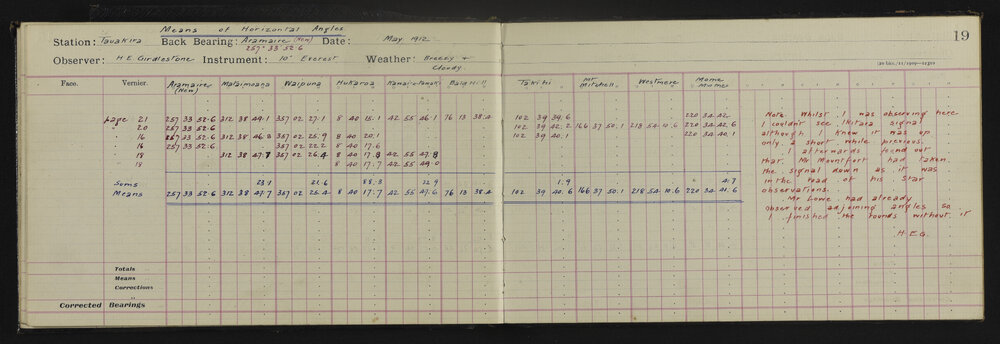 Means of Horizontal Angles
19
Station: Tauakira Back Bearing: Aramaire (New) Date: May 1912
257° 33 52.6
Observer: H E Girdlestone Instrument: 10" Everest Weather: Breezy + Cloudy
Face. Vernier. Aramaire (New) Mataimoana Waipuna Hukaroa Bald Hill Takihi Mr Mitchell Westmere
page 21 257 33 52.6 312 38 49.1 357 02 27.1 8 40 15.1 42 55 46.1 76 13 38.4 102 39 39.6 220 34 42.
" 20 257 33 52.6 102 39 42.2 166 37 50.1 218 54 10.6 220 34 42.6
" 16 257 33 52.6 312 38 46.3 357 02 25.9 8 40 20.1 102 39 40.1 220 34 40.1
" 16 257 33 52.6 357 02 22.2 8 40 17.6
" 18 312 38 47.7 357 02 26.4 8 40 17.8 42 55 47.8
" 19 8 40 17.7 42 55 49.0
Sums 23.1 21.6 88.3 22.9 1.9 4.7
Means 257 33 52.6 312 38 47.7 357 02 25.4 8 40 17.7 42 55 47.6 76 13 38.4 102 39 40.6 166 37 50.1 218 54 10.6 220 34 41.6
Note. Whilst I was observing here
I couldn't see Ikitara signal
although I knew it was up
only a short while previous.
I afterwards found out
that Mr Mountfort had taken
the signal down as it was
in the road of his Star
observations.
Mr Lowe had already
observed adjoining angles so
I finished the rounds without it
H.E.G.
Totals
Means
Corrections
"
Corrected Bearings